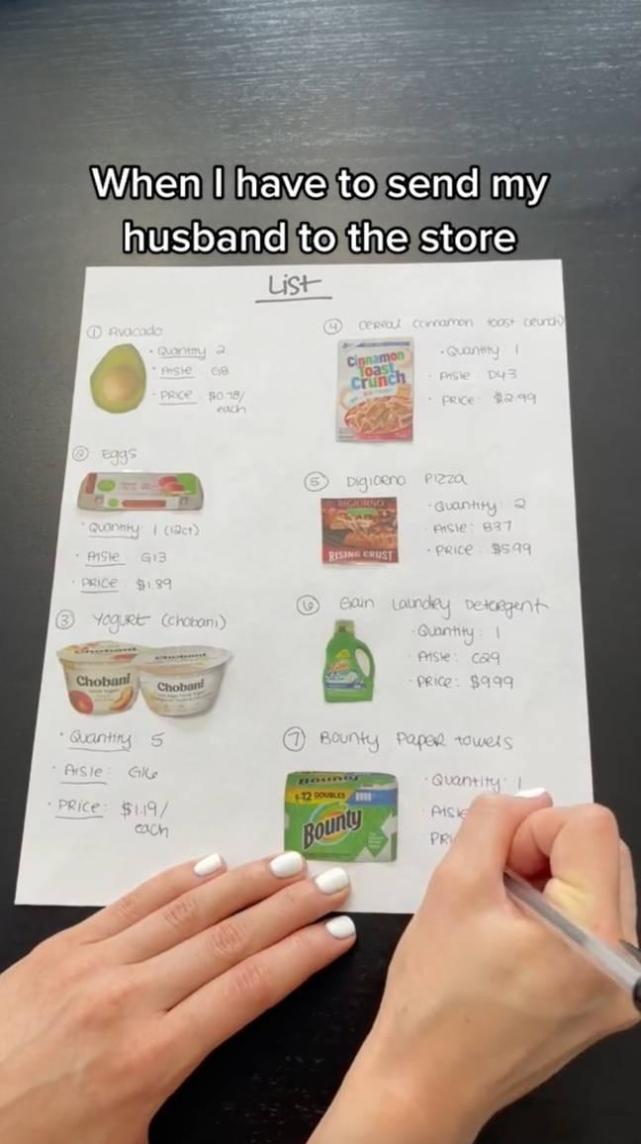 When I have to send my
husband to the store
List
① Avacado
• Quantity 2
• Aisle G8
• PRICE $0.78/
each
② Eggs
• Quantity 1 (12ct)
• Aisle G13
• PRICE $1.89
③ Yogurt (chobani)
Chobani
Chobani
• Quantity 5
• Aisle: G16
• PRICE: $1.19/
each
④ cereal (cinnamon toast crunch)
Cinnamon
Toast
Crunch
• Quantity 1
• Aisle D43
• PRICE: $2.99
⑤ Digiorno Pizza
DIGIORNO
RISING CRUST
• Quantity: 2
• Aisle: B37
• PRICE: $5.99
⑥ Gain Laundry Detergent
Gain
• Quantity: 1
• Aisle: C29
• PRICE: $9.99
⑦ Bounty Paper towels
Bounty
12 DOUBLES
Bounty
• Quantity: 1